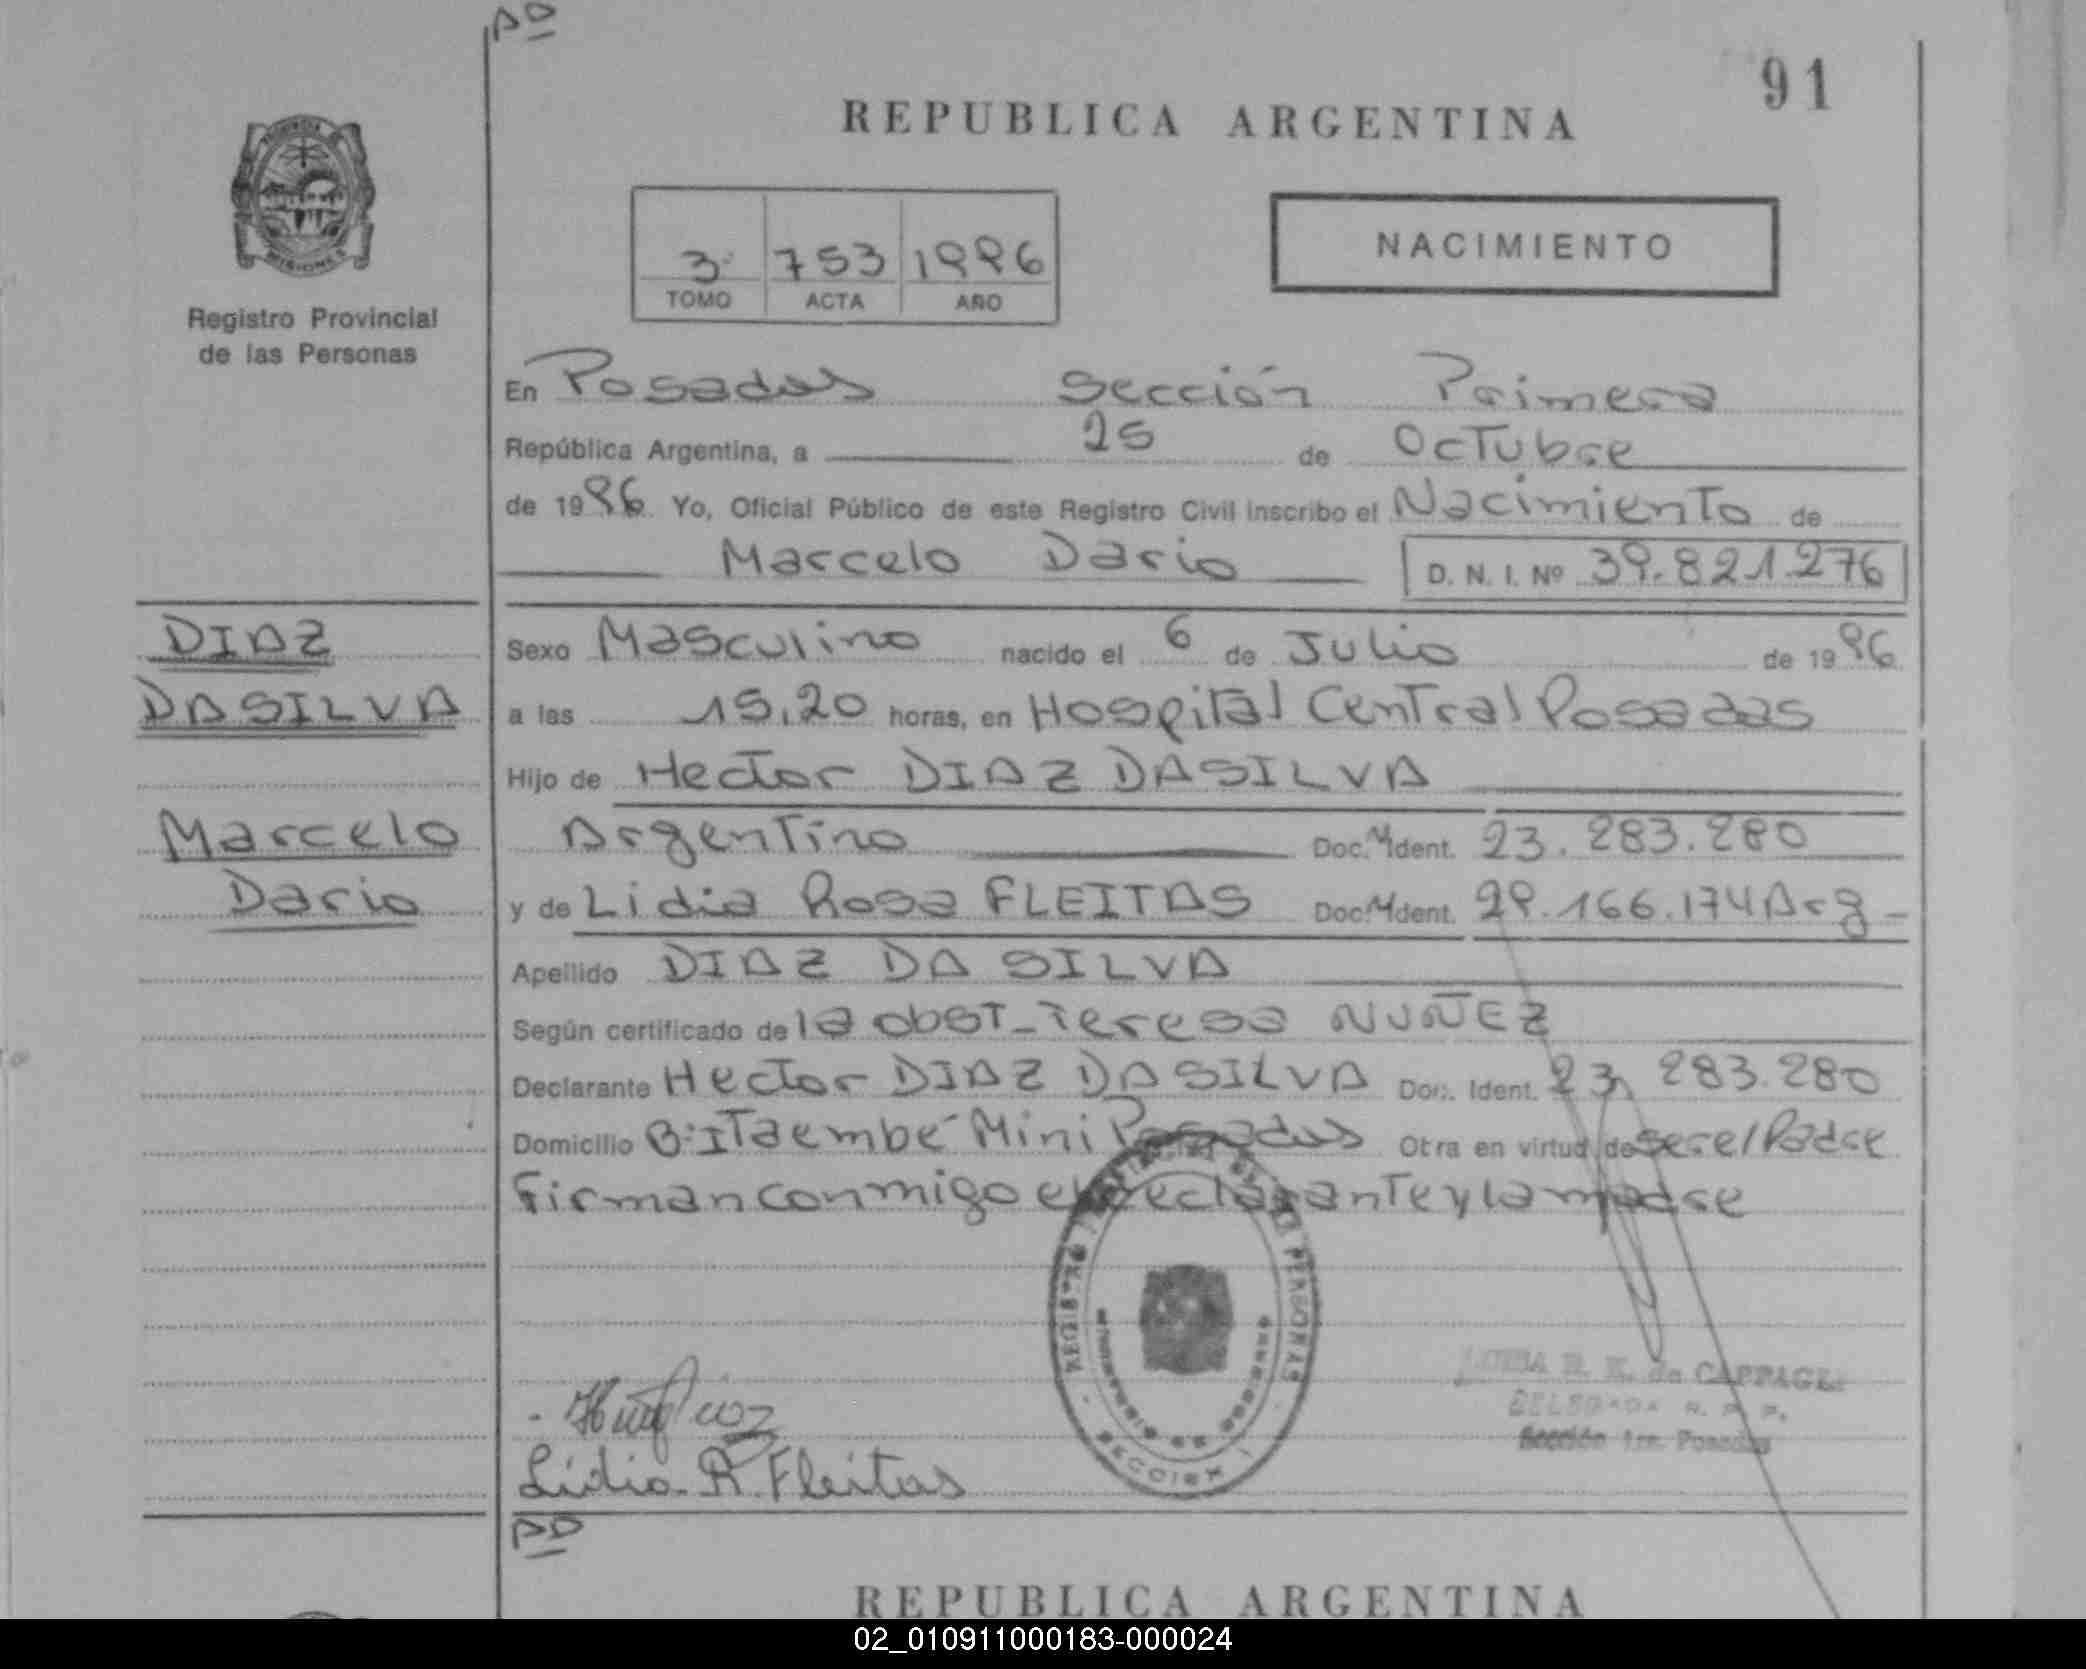 AD
91
REPUBLICA ARGENTINA
PROVINCIA DE
MISIONES
Registro Provincial
de las Personas
3º 753 1996
TOMO ACTA AÑO
NACIMIENTO
En Posadas Sección Primera
República Argentina, a 25 de Octubre
de 1996 Yo, Oficial Público de este Registro Civil inscribo el Nacimiento de
Marcelo Dario D. N. I. Nº 39.821.276
DIAZ
DASILVA
Marcelo
Dario
Sexo Masculino nacido el 6 de Julio de 1996
a las 15,20 horas, en Hospital Central Posadas
Hijo de Hector DIAZ DASILVA
Argentino Doc. Ident. 23.283.280
y de Lidia Rosa FLEITAS Doc. Ident. 29.166.174 Arg
Apellido DIAZ DA SILVA
Según certificado de la obst. Teresa NUÑEZ
Declarante Hector DIAZ DASILVA Doc. Ident. 23.283.280
Domicilio Bº Itaembé Mini Posadas Otra en virtud de ser el Padre
Firman conmigo el declarante y la madre
REGISTRO PERSONAS
SECCION 1
de CAPPAGLI
DELEGADA R. P. P.
Sección 1ra. Posadas
Lidia R. Fleitas
AD
REPUBLICA ARGENTINA
02_010911000183-000024